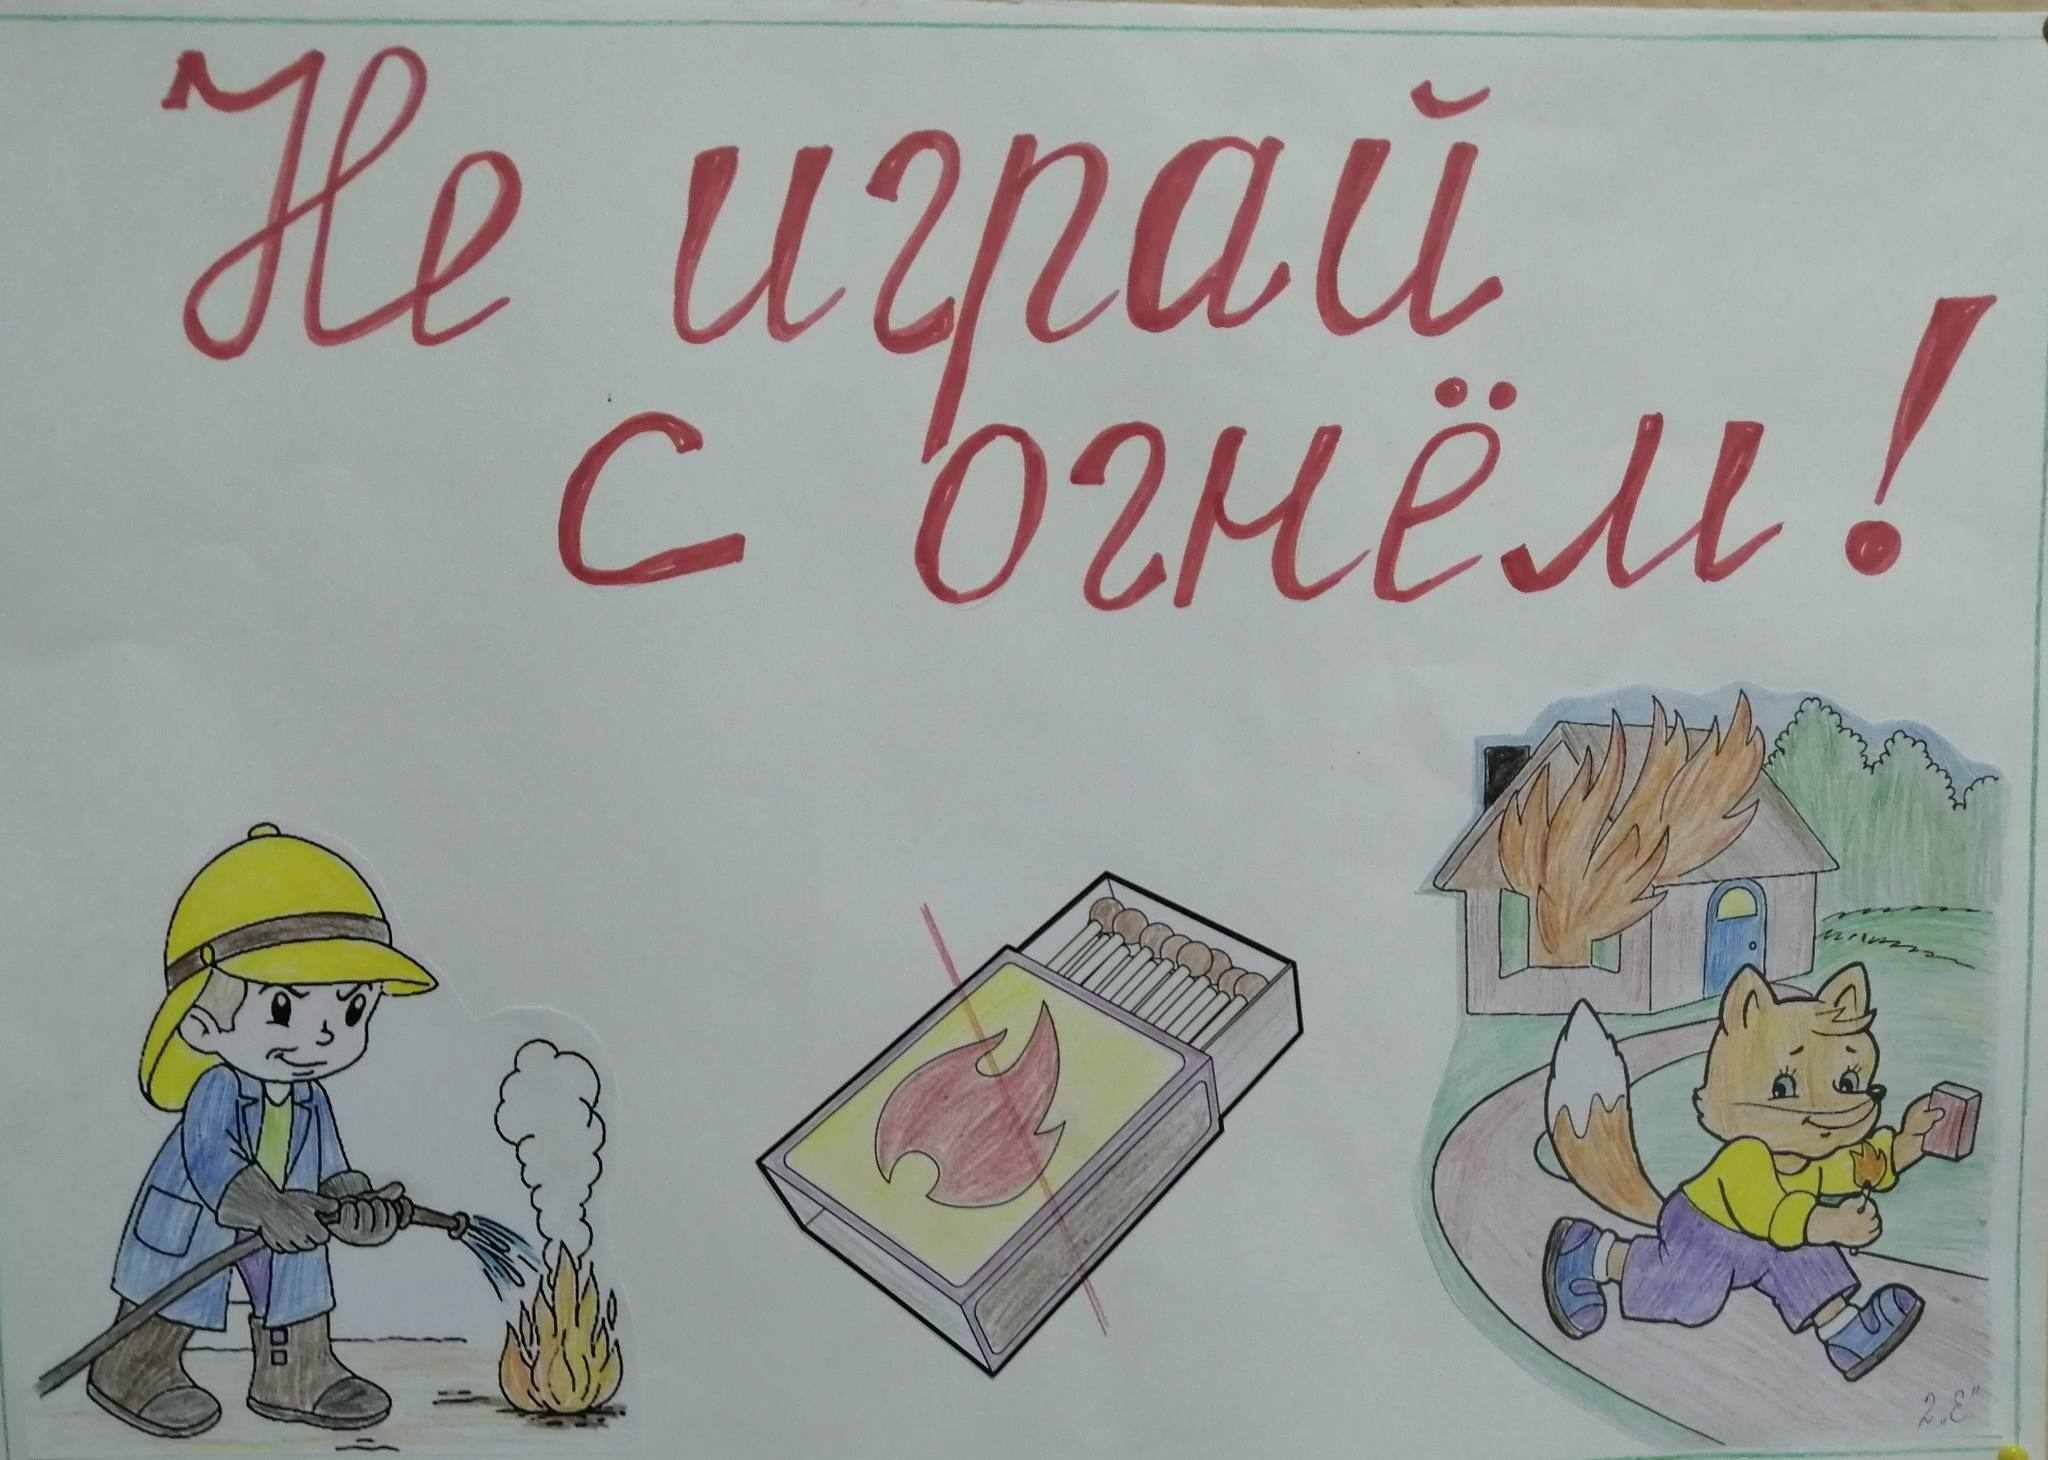 Не играй
с огнём!
2„Е"